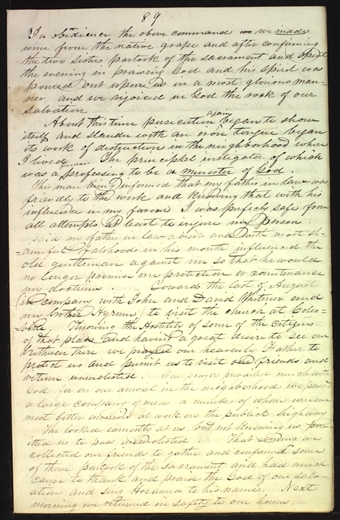 89
In obedience the above command we made
wine from the native grape and after confirming
the two sisters partook of the sacrament and spent
the evening in praising God and his spirit was
poured out upon us in a most glorious man
ner and we rejoiced in God the rock of our
salvation
About this time persecution again began to show
itself and slander with an iron tongue began
its work of destruction in the neighborhood where
I lived The principal instigator of which
was a professing to be a minister of God.
This man being informed that my father in law was
friendly to the work and knowing that with his
influence in my favour I was perfectly safe from
all attempts at least to injure my person
said my father in law a visit and with most sh-
ameful falsehoods in his mouth influenced the
old gentleman against me so that he would
no longer promise me protection or countenance
my doctrine. Towards the last of August
in company with John and David Whitmer and
my brother Hyrum, to visit the church at Coles-
ville. Knowing the hostility of some of the citizens
of that place and having a great desire to see our
brethren there we prayed our heavenly Father to
protect us and permit us to visit our friends and
return unmolested. we prevailed
God for on our arrival in the neighborhood we passed
a large company of men a number of whom were our
most bitter at work on the publick highway
They looked earnestly at us but not knowing us per
mitted us to pass unmolested. That evening we
collected our friends to gather and confirmed some
of them partook of the sacrament and had much
cause to thank and praise the God of our salv-
ation and sing Hosanna to his name. Next
morning we returned in safety to our homes.